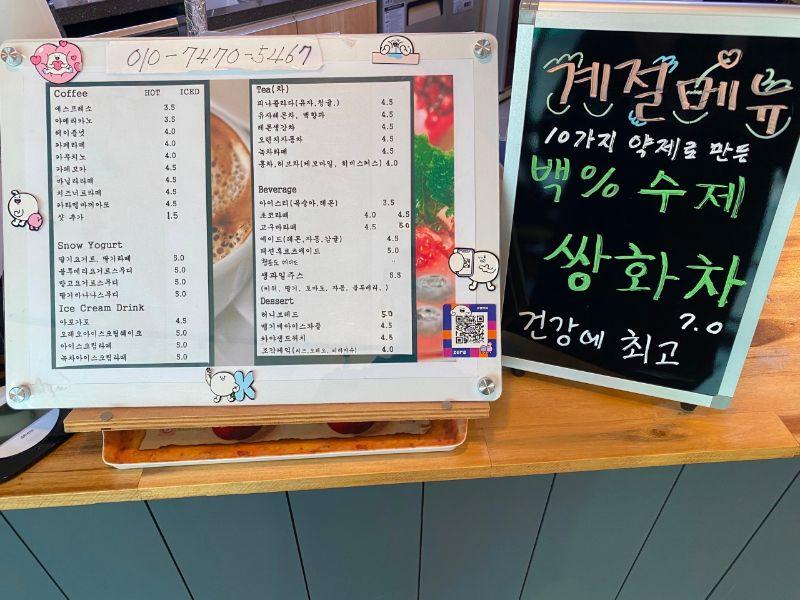 010-7470-5467
Coffee HOT ICED
에스프레소 3.5
아메리카노 3.5
헤이즐넛 4.0
카페라떼 4.0
카푸치노 4.0
카페모카 4.5
바닐라라떼 4.5
치즈너트라떼 4.5
카라멜마끼아또 4.5
샷 추가 1.5
Snow Yogurt
딸기요거트, 딸기라떼 5.0
블루베리요거트스무디 5.0
망고요거트스무디 5.0
딸기바나나스무디 5.0
Ice Cream Drink
아포가토 4.5
오레오아이스크림쉐이크 5.0
아이스크림라떼 5.0
녹차아이스크림라떼 5.0
Tea(차)
피나콜라다(유자,청귤,) 4.5
유자레몬차, 백향과 4.5
레몬생강차 4.5
오렌지자몽차 4.5
녹차라떼 4.5
홍차,허브차(페모마일, 히비스커스) 4.0
Beverage
아이스티(복숭아,레몬) 3.5
초코라떼 4.0 4.5
고구마라떼 4.5 5.0
에이드(레몬,자몽,감귤) 4.5
패션후르츠에이드 5.0
청포도 에이드 "
생과일주스 5.5
(키위, 딸기, 토마토, 자몽, 블루베리,)
Dessert
허니브레드 5.0
벨기에아이스와플 4.5
치아샌드위치 4.5
조각케익(치즈,오레오,티라미슈) 4.0
zero
K
계절메뉴
10가지 약제로 만든
백% 수제
쌍화차
7.0
건강에 최고